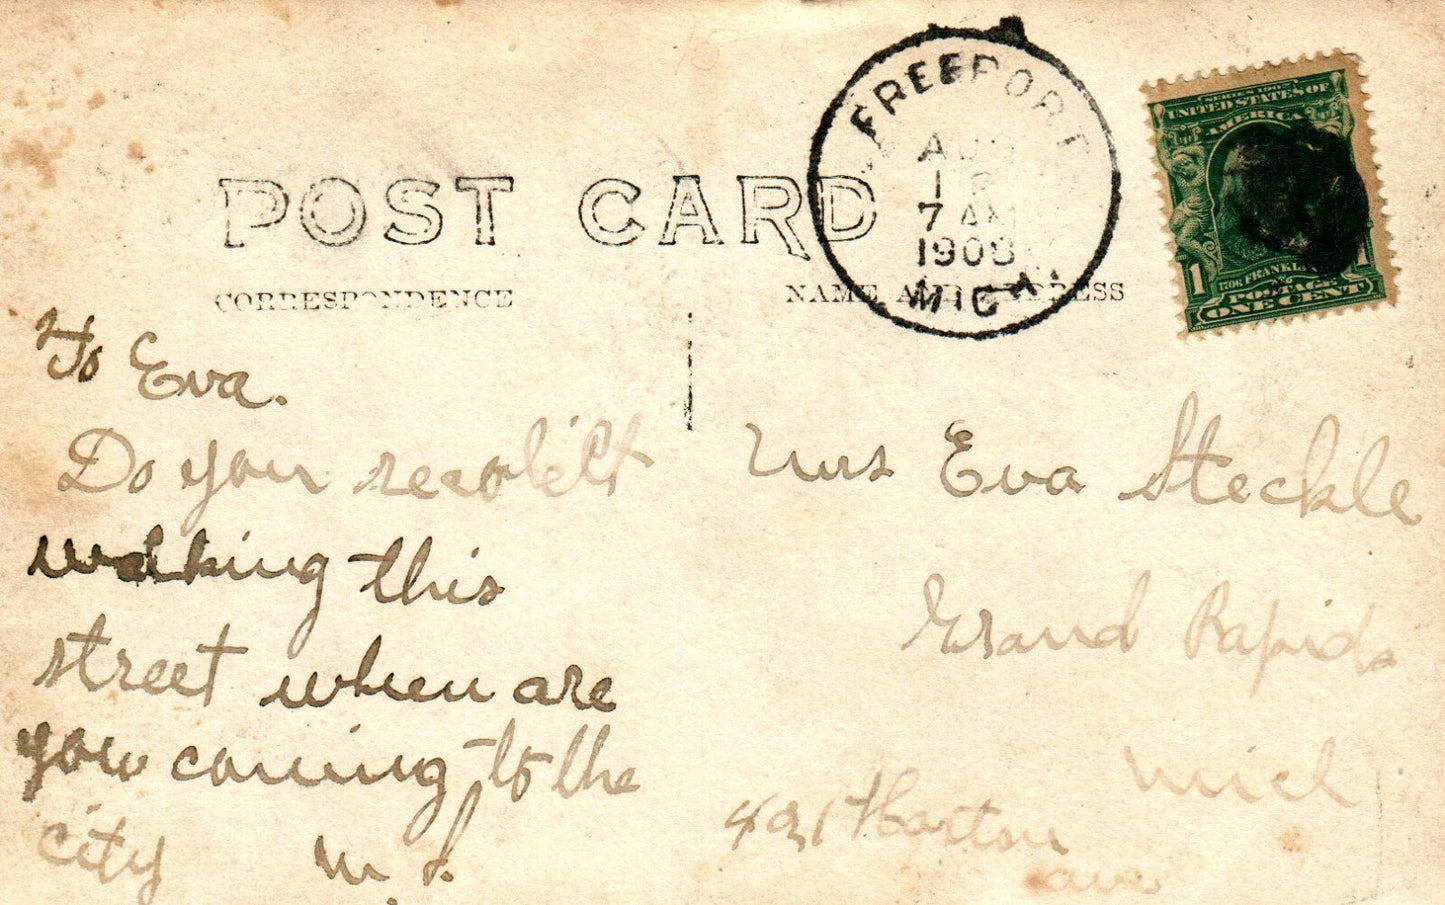 FREEPORT
AUG
7 AM
1908
MICH.
SERIES 1902
UNITED STATES OF
AMERICA
1706 FRANKLIN
POSTAGE
1 1
ONE CENT
POST CARD
CORRESPONDENCE
NAME AND ADDRESS
To Eva.
Do you recolelct
walking this
street when are
you coming to the
city
Eva Steckle
Grand Rapids
Mich
ave